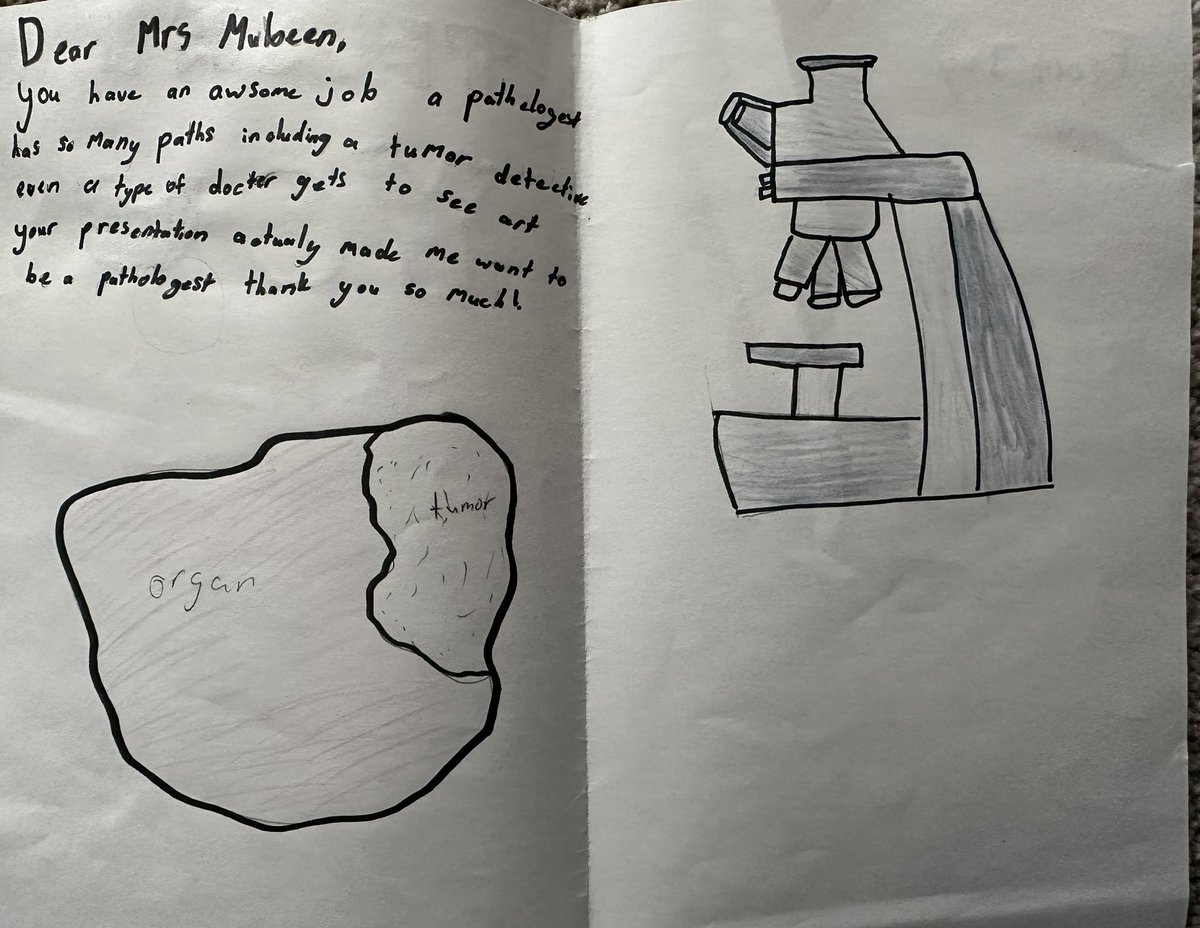 Dear Mrs Mubeen,
you have an awsome job a pathologest
has so many paths including a tumor detective
even a type of docter gets to see art
your presentation actualy made me want to
be a pathologest thank you so much!
tumor
organ